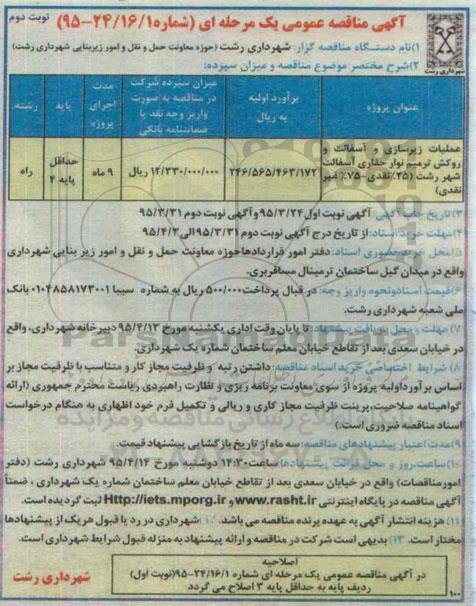 نوبت دوم
آگهی مناقصه عمومی یک مرحله ای (شماره ۹۵-۲۴/۱۶/۱)
شهرداری رشت
۱)نام دستگاه مناقصه گزار: شهرداری رشت (حوزه معاونت حمل و نقل و امور زیربنایی شهرداری رشت)
۲)شرح مختصر موضوع مناقصه و میزان سپرده:
عنوان پروژه
برآورد اولیه به ریال
میزان سپرده شرکت در مناقصه به صورت واریز وجه نقد یا ضمانتنامه بانکی
مدت اجرای پروژه
پایه
رشته
عملیات زیرسازی و آسفالت و روکش ترمیم نوار حفاری آسفالت شهر رشت (۲۵٪نقدی-۷۵٪ غیر نقدی)
۲۴۶/۵۶۵/۴۶۳/۱۷۲
۱۲/۳۳۰/۰۰۰/۰۰۰ ریال
۹ ماه
حداقل پایه ۴
راه
۳)تاریخ چاپ آگهی: آگهی نوبت اول ۹۵/۳/۲۴ و آگهی نوبت دوم ۹۵/۳/۳۱
۴)مهلت خرید اسناد: از تاریخ درج آگهی نوبت دوم ۹۵/۳/۳۱ الی ۹۵/۴/۲
۵)محل خرید حضوری اسناد: دفتر امور قراردادها حوزه معاونت حمل و نقل و امور زیر بنایی شهرداری
واقع در میدان گیل ساختمان ترمینال مسافربری.
۶)قیمت اسناد و نحوه واریز وجه: در قبال پرداخت ۵۰۰/۰۰۰ ریال به شماره سیبا ۰۱۰۴۸۵۸۱۷۳۰۰۱ بانک
ملی شعبه شهرداری رشت.
۷) مهلت و محل دریافت پیشنهاد: تا پایان وقت اداری یکشنبه مورخ ۹۵/۴/۱۳ دبیرخانه شهرداری، واقع
در خیابان سعدی بعد از تقاطع خیابان معلم ساختمان شماره یک شهرداری.
۸) شرایط اختصاصی خرید اسناد مناقصه: داشتن رتبه و ظرفیت مجاز کار و متناسب با ظرفیت مجاز بر
اساس برآورد اولیه پروژه از سوی معاونت برنامه ریزی و نظارت راهبردی ریاست محترم جمهوری (ارائه
گواهینامه صلاحیت، پرینت ظرفیت مجاز کاری و ریالی و تکمیل فرم خود اظهاری به هنگام درخواست
اسناد مناقصه ضروری است.)
۹)مدت اعتبار پیشنهادهای مناقصه: سه ماه از تاریخ بازگشایی پیشنهاد قیمت.
۱۰)ساعت، روز و محل قرائت پیشنهادها: ساعت ۱۴:۳۰ دوشنبه مورخ ۹۵/۴/۱۴ شهرداری رشت (دفتر
امور مناقصات) واقع در خیابان سعدی بعد از تقاطع خیابان معلم ساختمان شماره یک شهرداری ، ضمناً
آگهی مناقصه در پایگاه اینترنتی www.rasht.ir و Http://iets.mporg.ir ثبت گردیده است.
۱۱) هزینه انتشار آگهی به عهده برنده مناقصه می باشد. ۱۲)شهرداری در رد یا قبول هریک از پیشنهادها
مختار است. ۱۳) بدیهی است شرکت در مناقصه و ارائه پیشنهاد به منزله قبول شرایط شهرداری است.
اصلاحیه
در آگهی مناقصه عمومی یک مرحله ای شماره ۹۵-۲۴/۱۶/۱(نوبت اول)
ردیف پایه به حداقل پایه ۳ اصلاح می گردد
شهرداری رشت
۱۰۰